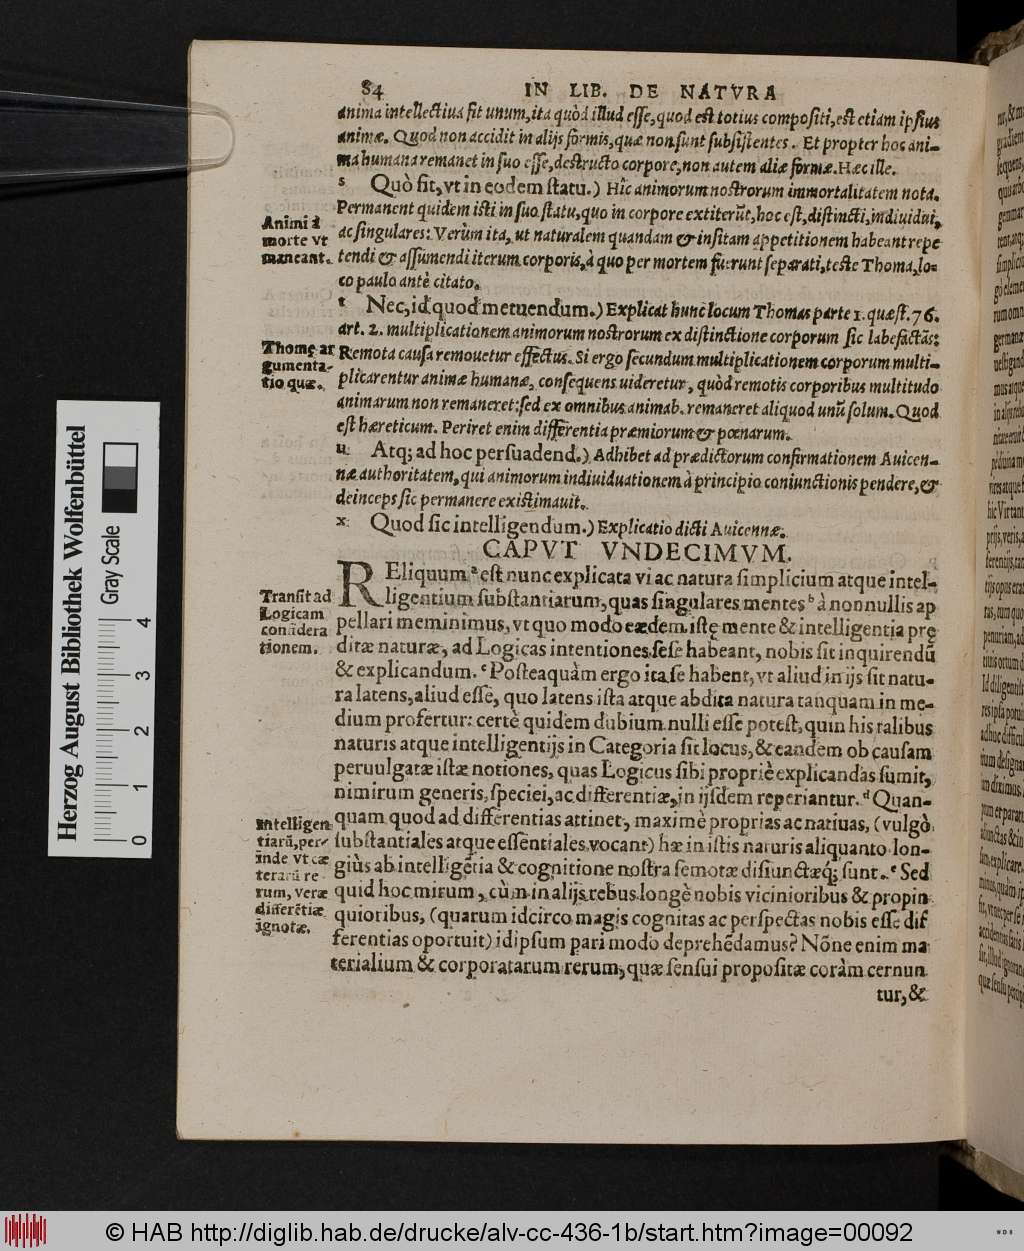 84 IN LIB. DE NATVRA
anima intellectiua fit unum, ita quòd illud esse, quod est totius compositi, est etiam ipsius
animæ. Quod non accidit in alijs formis, quæ non sunt subsistentes. Et propter hoc ani-
ma humana remanet in suo esse, destructo corpore, non autem aliæ formæ. Hæc ille.
s Quò fit, vt in eodem statu.) Hîc animorum nostrorum immortalitatem nota.
Permanent quidem isti in suo statu, quo in corpore extiterũt, hoc est, distincti, indiuidui,
ac singulares: Verùm ita, ut naturalem quandam & insitam appetitionem habeant repe
tendi & assumendi iterum corporis, à quo per mortem fuerunt separati, teste Thoma, lo-
co paulo antè citato.
Animi à
morte vt
maneant.
t Nec, id quod metuendum.) Explicat hunc locum Thomas parte 1. quæst. 76.
art. 2. multiplicationem animorum nostrorum ex distinctione corporum sic labefactãs:
Remota causa remouetur effectus. Si ergo secundum multiplicationem corporum multi-
plicarentur animæ humanæ, consequens uideretur, quòd remotis corporibus multitudo
animarum non remaneret: sed ex omnibus animab. remaneret aliquod unũ solum. Quod
est hæreticum. Periret enim differentia præmiorum & pœnarum.
Thomę ar
gumenta-
tio quæ.
u Atq; ad hoc persuadend.) Adhibet ad prædictorum confirmationem Auicen-
næ authoritatem, qui animorum indiuiduationem à principio coniunctionis pendere, &
deinceps sic permanere existimauit.
x Quod sic intelligendum.) Explicatio dicti Auicennæ.
CAPVT VNDECIMVM.
REliquum a est nunc explicata vi ac natura simplicium atque intel-
ligentium substantiarum, quas singulares mentes b à nonnullis ap
pellari meminimus, vt quo modo eædem istę mente & intelligentia prę
ditæ naturæ, ad Logicas intentiones sese habeant, nobis sit inquirendũ
& explicandum. c Posteaquàm ergo ita se habent, vt aliud in ijs sit natu-
ra latens, aliud esse, quo latens ista atque abdita natura tanquam in me-
dium profertur: certè quidem dubium nulli esse potest, quin his talibus
naturis atque intelligentijs in Categoria sit locus, & eandem ob causam
peruulgatæ istæ notiones, quas Logicus sibi propriè explicandas sumit,
nimirum generis, speciei, ac differentiæ, in ijsdem reperiantur. d Quan-
quam quod ad differentias attinet, maximè proprias ac natiuas, (vulgò
substantiales atque essentiales vocant) hæ in istis naturis aliquanto lon-
giùs ab intelligẽtia & cognitione nostra semotæ disiunctæq; sunt. e Sed
quid hoc mirum, cùm in alijs rebus longè nobis vicinioribus & propin
quioribus, (quarum idcirco magis cognitas ac perspectas nobis esse dif
ferentias oportuit) id ipsum pari modo deprehẽdamus? Nõne enim ma
terialium & corporatarum rerum, quæ sensui propositæ coràm cernun
tur, &
Transit ad
Logicam
considera
tionem.
Intelligen
tiarũ, per-
inde vt cæ
terarũ re
rum, veræ
differẽtiæ
ignotæ.
Herzog August Bibliothek Wolfenbüttel
Gray Scale
0 1 2 3 4
© HAB http://diglib.hab.de/drucke/alv-cc-436-1b/start.htm?image=00092